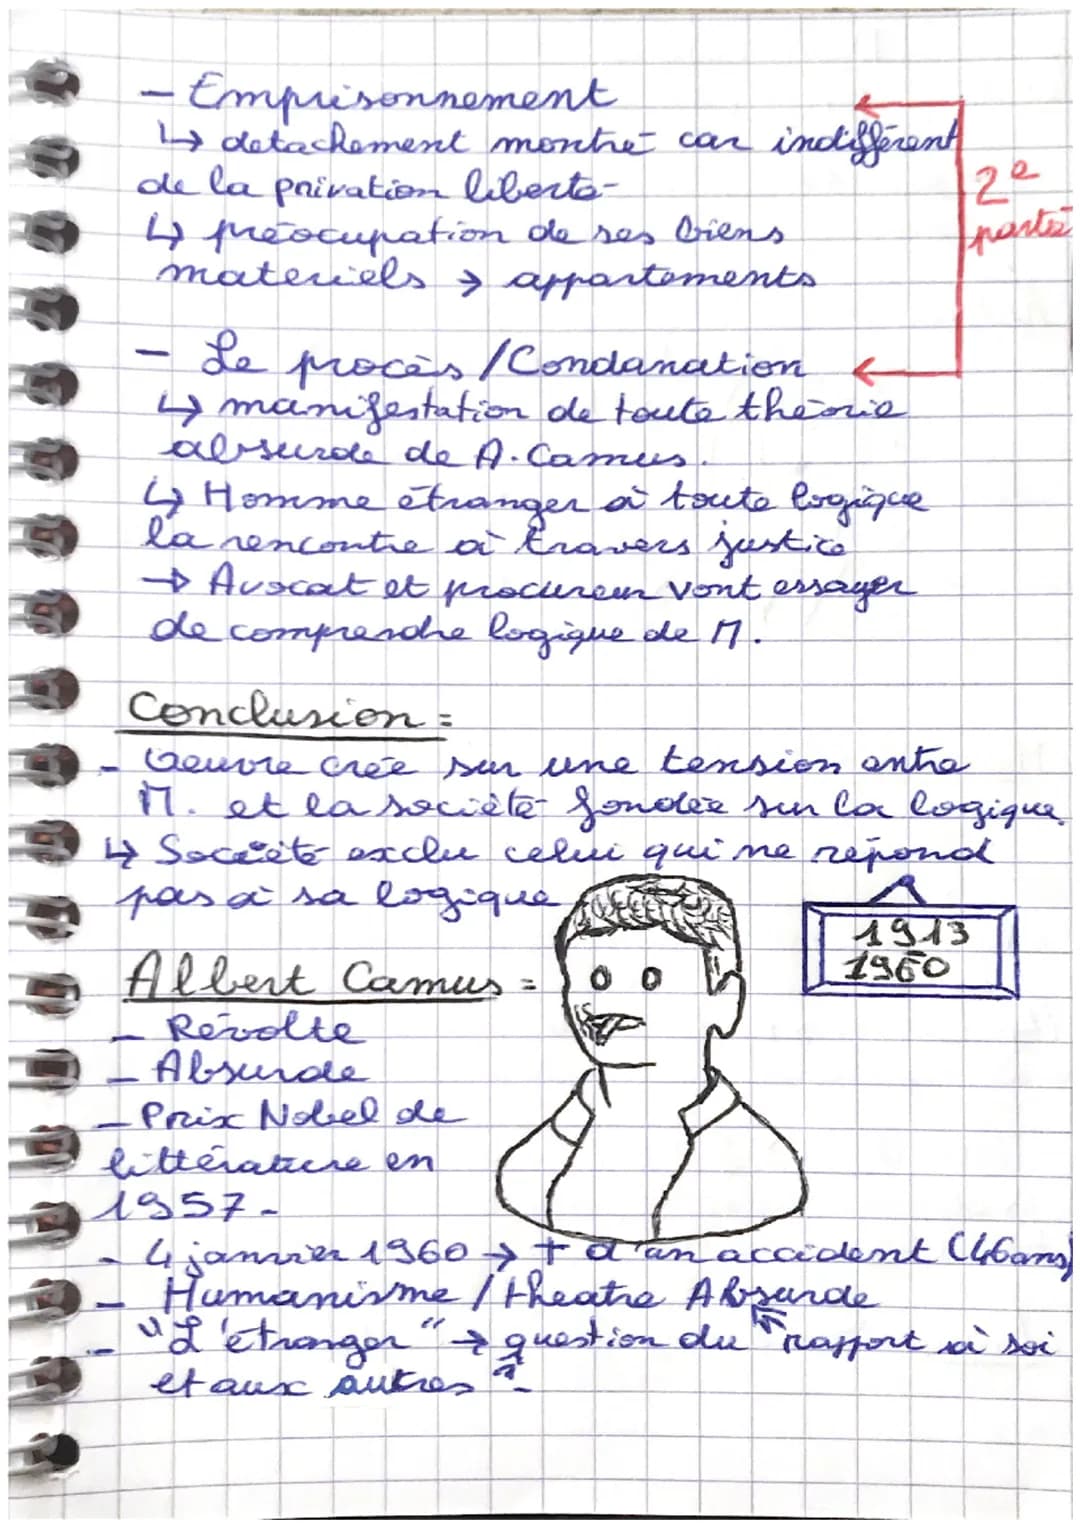 - Emprisonnement
↳ detachement montré car indifférent
de la privation liberté
↳ préocupation de ses biens
materiels → appartements
2e
partie
- Le procès / Condanation
↳ manifestation de toute théorie
absurde de A. Camus.
↳ Homme étranger à toute logique
la rencontre à travers justice
→ Avocat et procureur vont essayer
de comprendre logique de M.
Conclusion :
- Oeuvre crée sur une tension entre
M. et la société fondée sur la logique.
↳ Société exclu celui qui ne répond
pas à sa logique
1913
1960
Albert Camus :
- Révolte
- Absurde
- Prix Nobel de
littérature en
1957.
- 4 janvier 1960 → + d'un accident (46ans)
- Humanisme / theatre Absurde
- "L'étranger" → question du rapport à soi
et aux autres